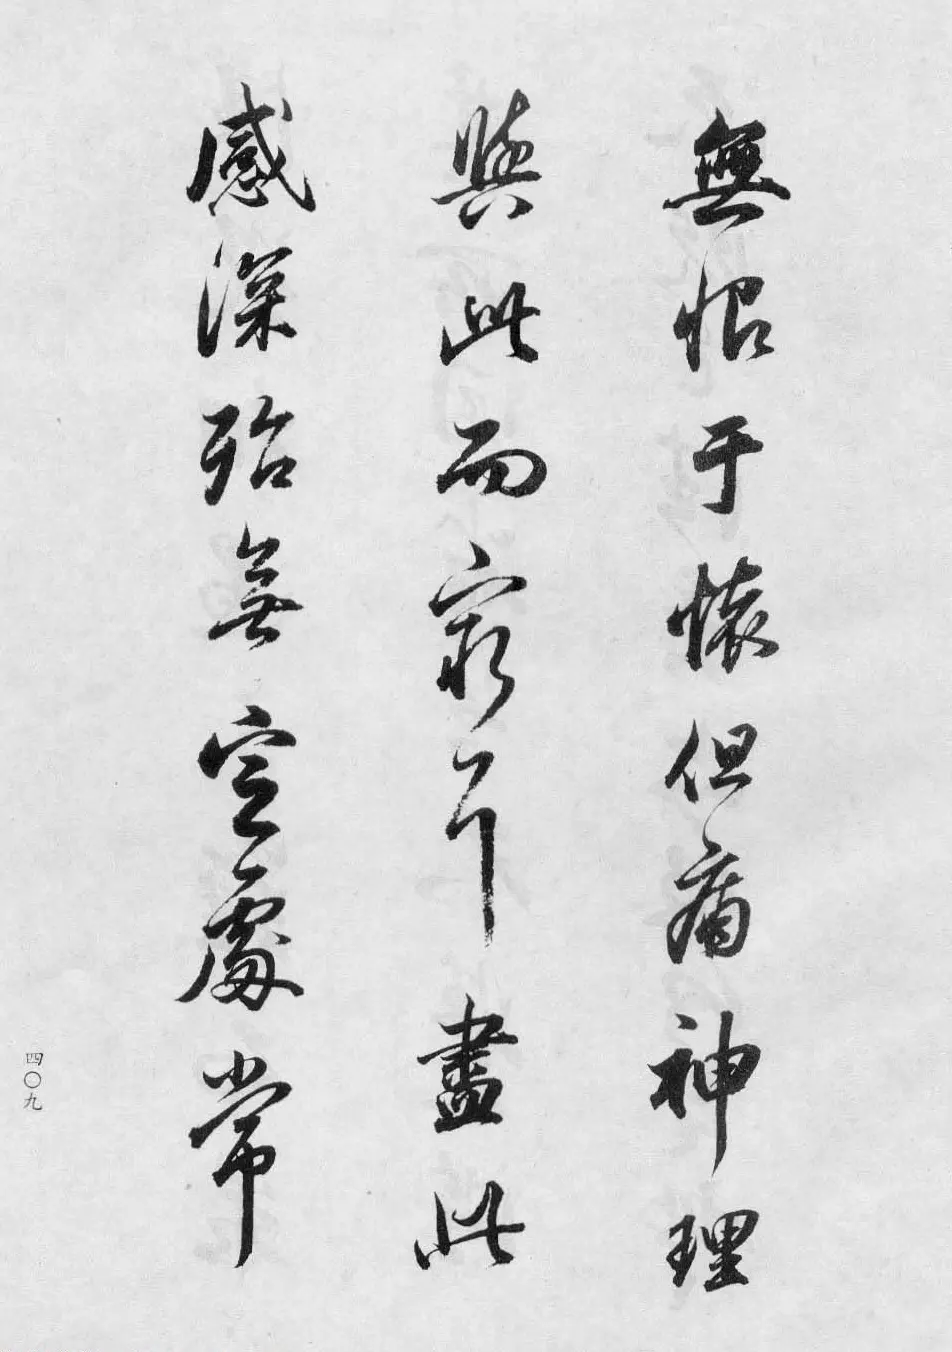 無恨于懷但痛神理
與此而窮耳盡此
感深殆無宜處常
四〇九